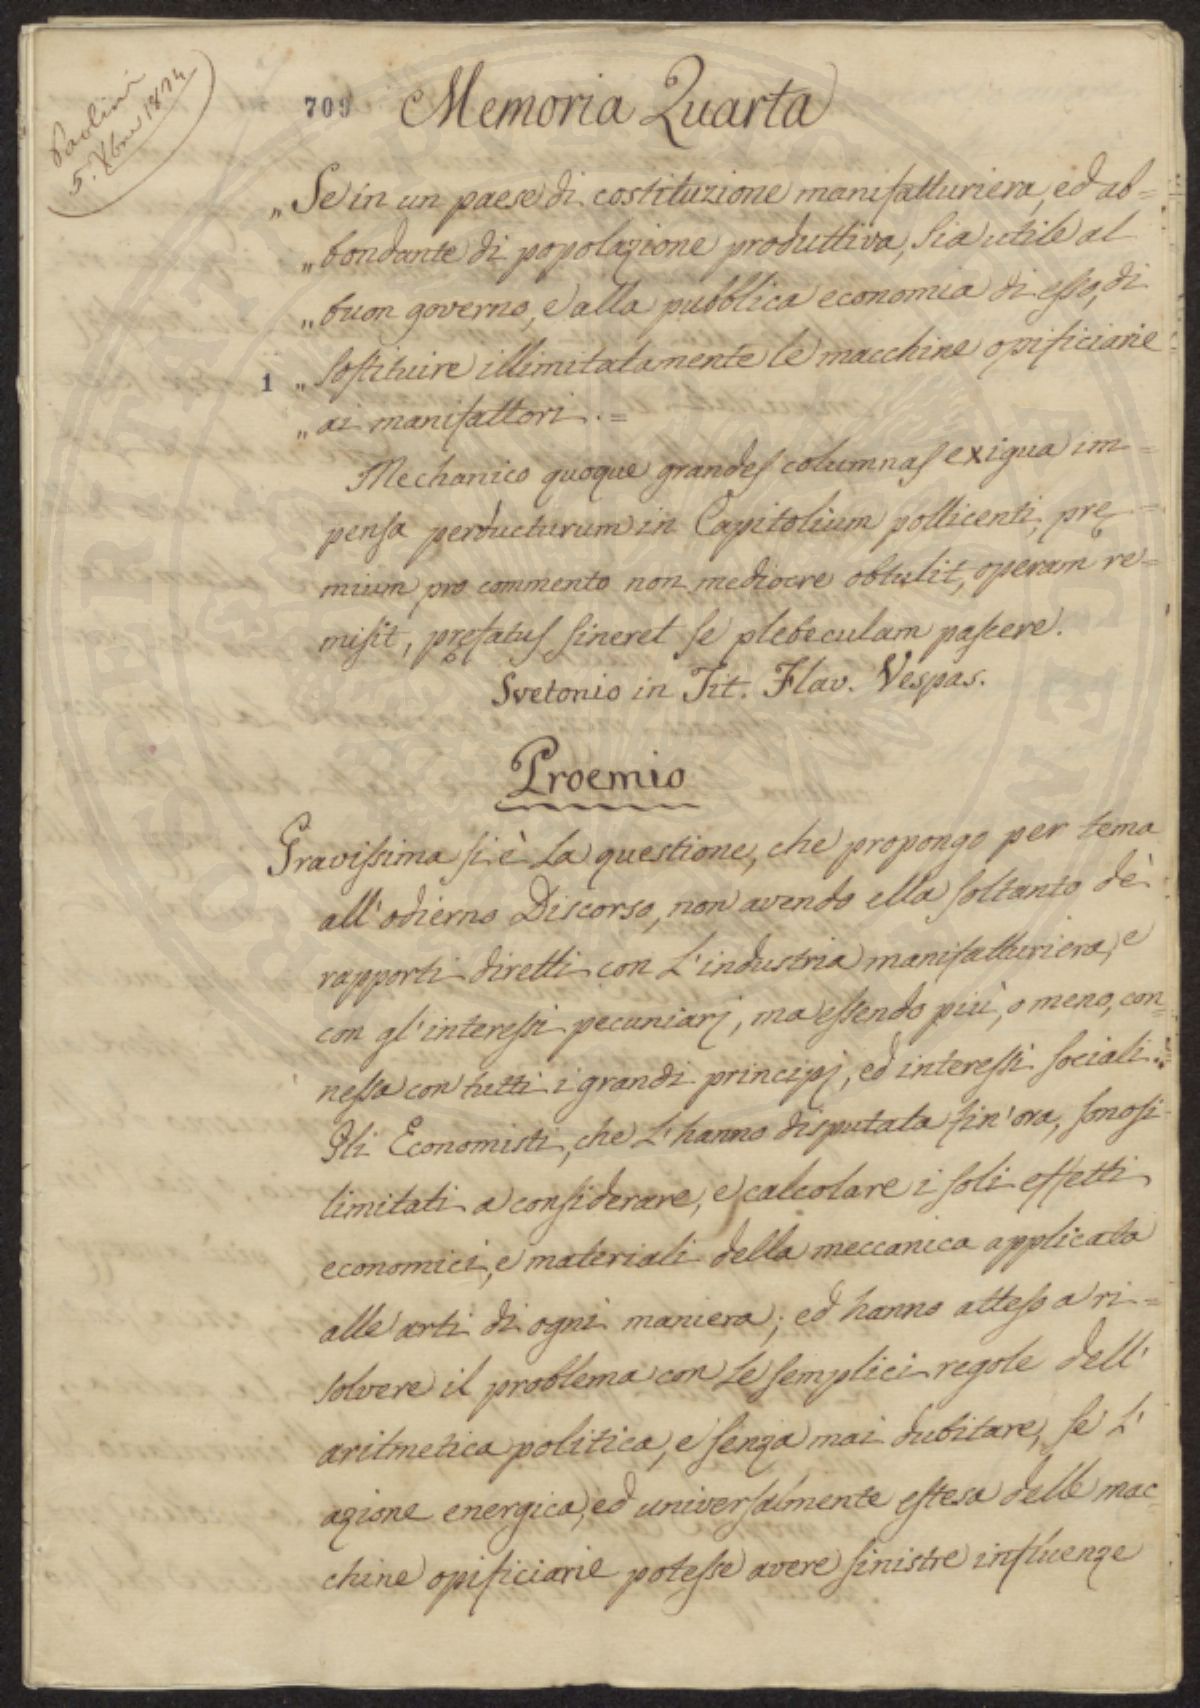 Paolini
5. Xbre 1824
709 Memoria Quarta
„ Se in un paese di costituzione manifatturiera, ed ab=
„ bondante di popolazione produttiva, sia utile al
„ buon governo, e alla pubblica economia di esso, di
1 „ sostituire illimitatamente le macchine opificiarie
„ ai manifattori. =
Mechanico quoque grandes columnas exigua im=
pensa perducturum in Capitolium pollicenti, prę=
mium pro commento non mediocre obtulit, operam re=
misit, pręfatus sineret se plebeculam pascere.
Svetonio in Tit. Flav. Vespas.
Proemio
Gravissima si è la questione, che propongo per tema
all'odierno Discorso, non avendo ella soltanto dè
rapporti diretti con l'industria manifatturiera, e
con gl'interessi pecuniarj, ma essendo più, o meno, con=
nessa con tutti i grandi principj, ed interessi sociali.
Gli Economisti, che l'hanno disputata fin'ora, sonosi
limitati a considerare, e calcolare i soli effetti
economici, e materiali della meccanica applicata
alle arti di ogni maniera; ed hanno atteso a ri=
solvere il problema con le semplici regole dell'
aritmetica politica, e senza mai dubitare, se l'
azione energica, ed universalmente estesa delle mac=
chine opificiarie potesse avere sinistre influenze